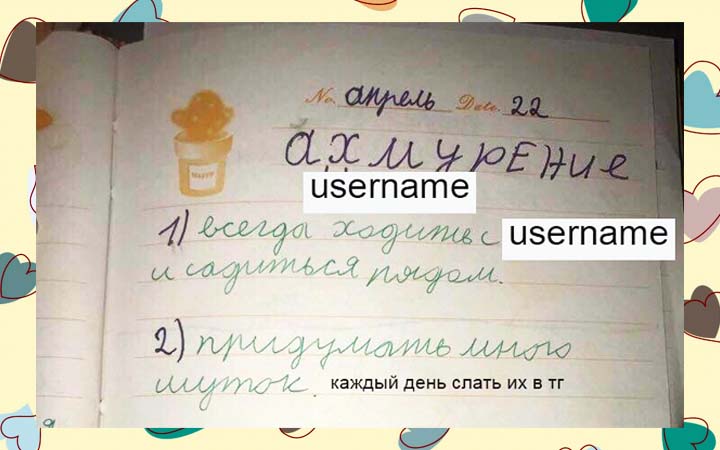 No. апрель Date. 22
ахмурЕНие
username
1) всегда ходить с username
и садиться рядом.
2) придумать много
шуток. каждый день слать их в тг